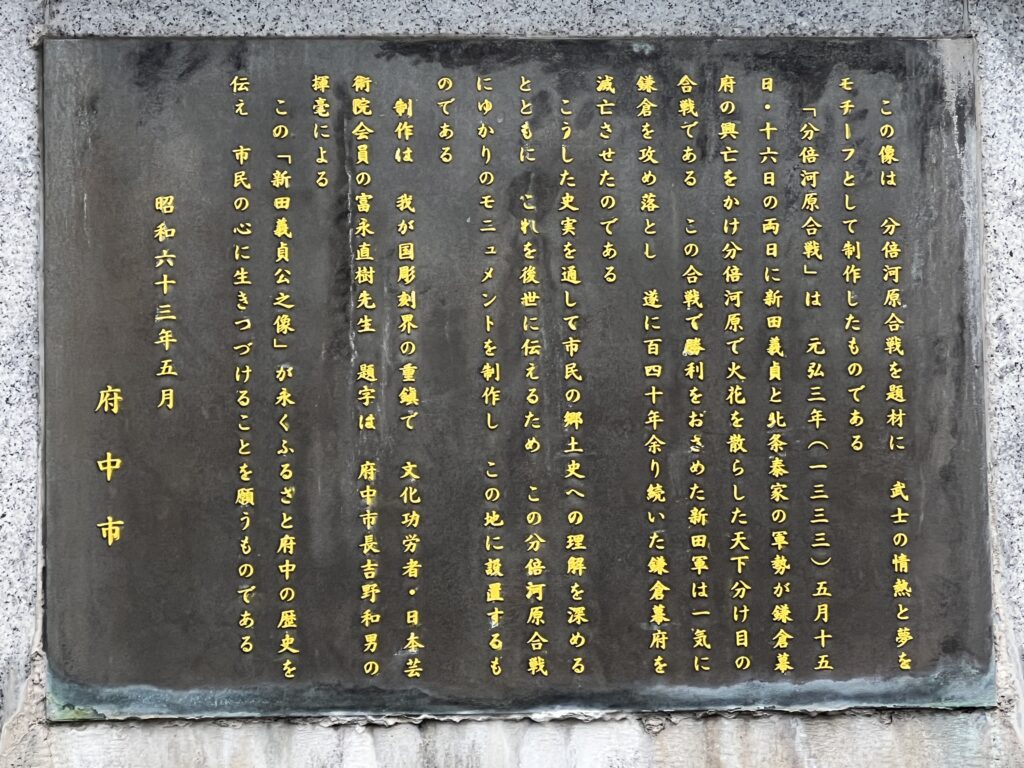 この像は　分倍河原合戦を題材に　武士の情熱と夢を
モチーフとして制作したものである
「分倍河原合戦」は　元弘三年（一三三三）五月十五
日・十六日の両日に新田義貞と北条泰家の軍勢が鎌倉幕
府の興亡をかけ分倍河原で火花を散らした天下分け目の
合戦である　この合戦で勝利をおさめた新田軍は一気に
鎌倉を攻め落とし　遂に百四十年余り続いた鎌倉幕府を
滅亡させたのである
こうした史実を通して市民の郷土史への理解を深める
とともに　これを後世に伝えるため　この分倍河原合戦
にゆかりのモニュメントを制作し　この地に設置するも
のである
制作は　我が国彫刻界の重鎮で　文化功労者・日本芸
術院会員の富永直樹先生　題字は　府中市長吉野和男の
揮毫による
この「新田義貞公之像」が永くふるさと府中の歴史を
伝え　市民の心に生きつづけることを願うものである
昭和六十三年五月
府中市